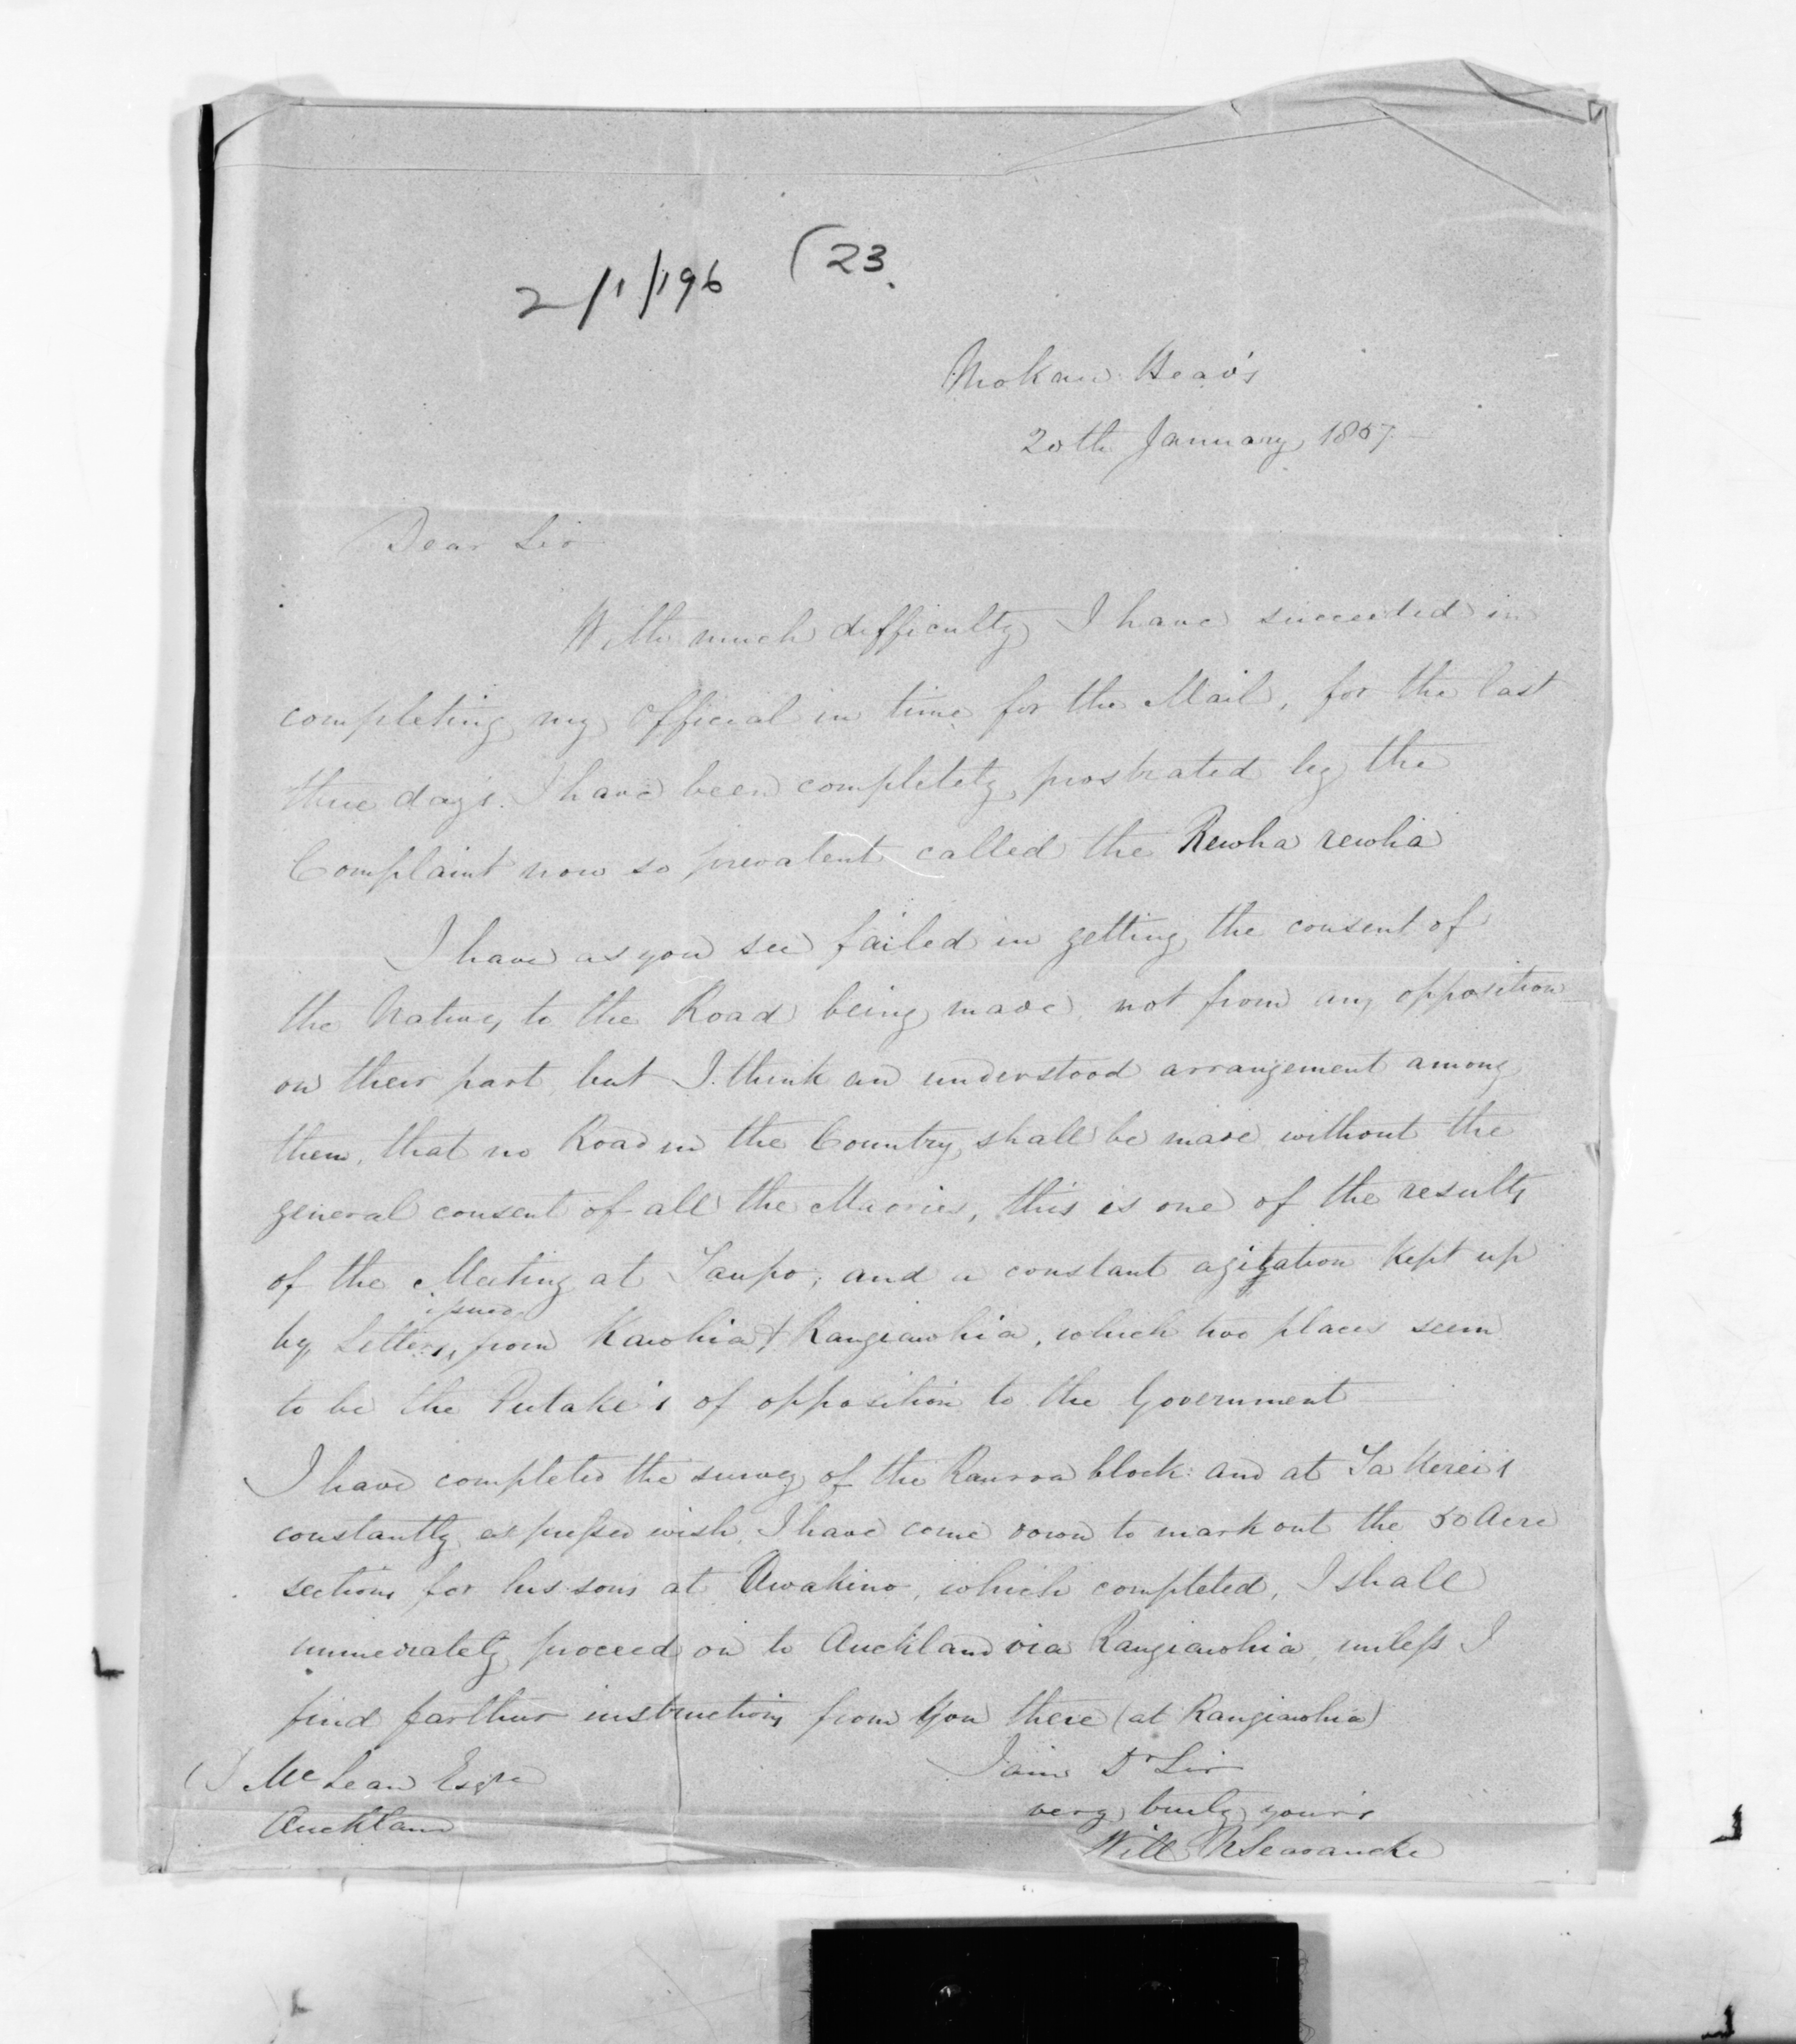 2/1/196 (23.
Mokau Head's
20th January 1857
Dear Sir
With much difficulty I have succeeded in
completing my official in time for the Mail, for the last
three day's I have been completely prostrated by the
Complaint now so prevalent called the Rewha rewha
I have as you see failed in getting the consent of
the Natives to the Road being made, not from any opposition
on their part, but I think an understood arrangement among
them, that no Road in the Country shall be made without the
general consent of all the Maories, this is one of the results
of the Meeting at Taupo; and a constant agitation kept up
issued
by Letters, from Kawhia & Rangiawhia, which two places seem
to be the Putake's of opposition to the Government
I have completed the survey of the Rauroa block: and at Ta Kerei's
constantly expressed wish, I have come down to mark out the 50 Acre
sections for his sons at Awakino, which completed, I shall
immediately proceed on to Auckland via Rangiawhia, unless I
find farther instructions from You there (at Rangiawhia)
I am Dr Sir
very truly your's
Will N Searancke
D McLean Esqre
Auckland